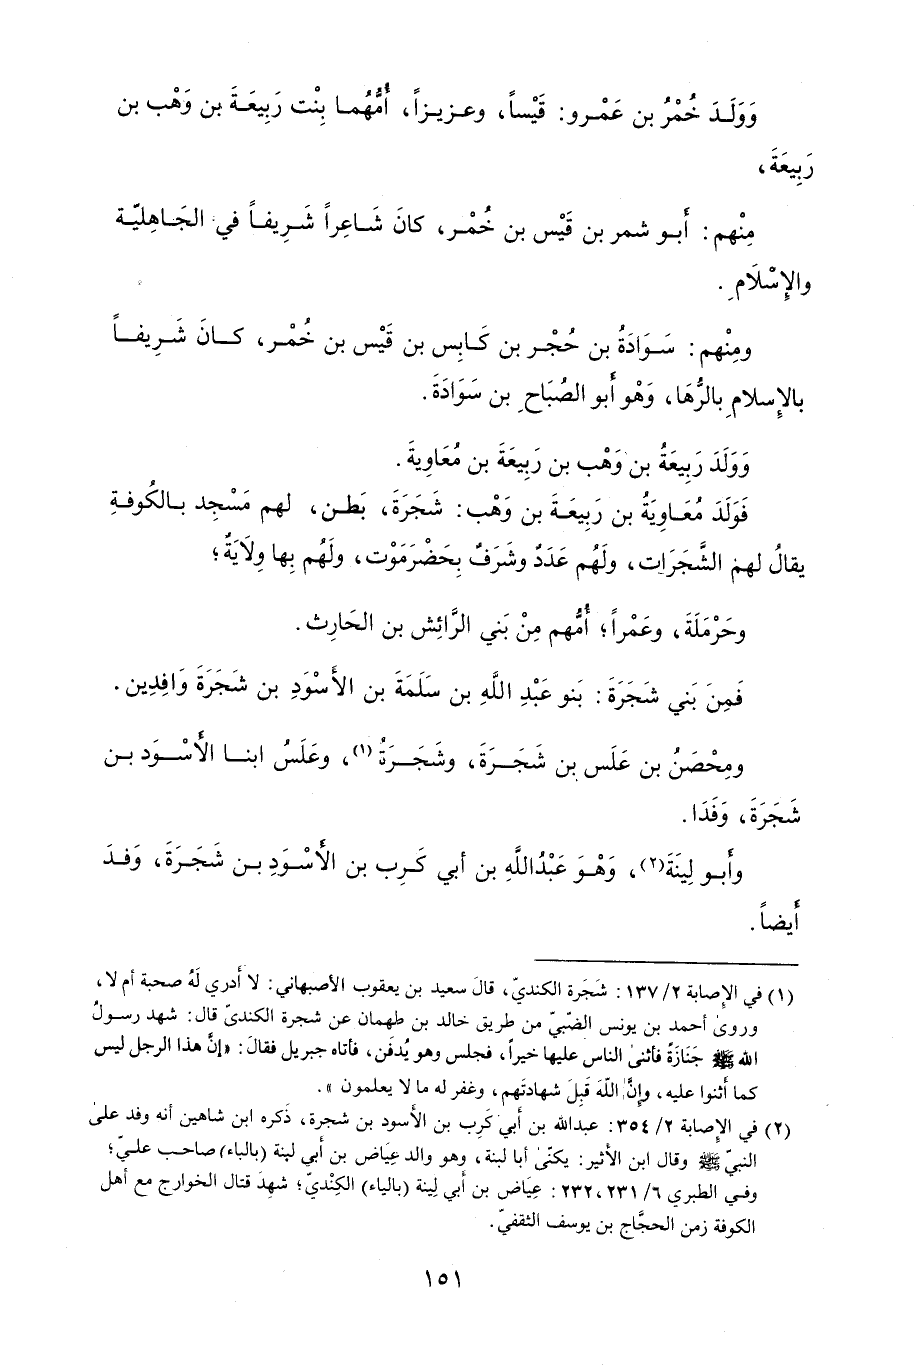 وَوَلَدَ خُمْرُ بن عَمْرو: قَيْساً، وعزيزاً، أُمُّهُما بِنْت رَبِيعَةَ بن وَهْب بن
رَبِيعَةَ،
مِنْهم: أَبو شمر بن قَيْس بن خُمْر، كانَ شَاعِراً شَرِيفاً في الجَاهِليّة
والإِسْلَامِ.
ومِنْهم: سَوَادَةُ بن حُجْر بن كَابِس بن قَيْس بن خُمْر، كانَ شَرِيفاً
بالإِسلامِ بالرُّهَا، وَهْو أَبو الصُبَاحِ بن سَوَادَةَ.
وَوَلَدَ رَبِيعَةُ بن وَهْب بن رَبِيعَةَ بن مُعَاوِيةَ.
فَوَلَدَ مُعَاوِيَةُ بن رَبِيعَةَ بن وَهْب: شَجَرَةَ، بَطن، لهم مَسْجِد بالكُوفةِ
يقالُ لهم الشَّجَرَات، ولَهُم عَدَدٌ وشَرَفٌ بِحَضْرَمَوْت، ولَهُم بِها وِلاَيَةٌ؛
وحَرْمَلَةَ، وعَمْراً؛ أُمُّهم مِنْ بَني الرَّائِش بن الحَارِث.
فَمِنَ بَني شَجَرَةَ: بَنو عَبْدِ اللَّهِ بن سَلَمَةَ بن الأَسْوَدِ بن شَجَرَةَ وَافِدِين.
ومِحْصَنُ بن عَلَس بن شَجَرَةَ، وشَجَرَةُ(١)، وعَلَسُ ابنا الأَسْوَد بن
شَجَرَةَ، وَفَدَا.
وأَبو لِينَةَ(٢)، وَهْوَ عَبْدُاللَّهِ بن أَبي كَرِب بن الأَسْوَدِ بن شَجَرَةَ، وَفدَ
أَيضاً.
(١) في الإِصابة ٢/ ١٣٧: شَجَرة الكنديّ، قالَ سعيد بن يعقوب الأصبهاني: لا أدري لَهُ صحبة أم لا،
وروىٰ أحمد بن يونس الضّبيّ من طريق خالد بن طهمان عن شجرة الكندىّ قال: شهد رسولُ
الله ﷺ جَنَازَةً فأثنىٰ الناس عليها خيراً، فجلس وهو يُدفَن، فأتاه جبريل فقالَ: «إنَّ هذا الرجل ليس
كما أثنوا عليه، وإنَّ اللَّهَ قَبِلَ شهادتَهم، وغفر له ما لا يعلمون».
(٢) في الإِصابة ٢/ ٣٥٤: عبدالله بن أبي كَرِب بن الأسود بن شجرة، ذَكره ابن شاهين أنه وفد علىٰ
النبيّ ﷺ وقال ابن الأثير: يكنّىٰ أبا لبنة، وهو والد عِيَاض بن أبي لبنة (بالباء) صاحب عليّ؛
وفي الطبري ٦/ ٢٣١، ٢٣٢: عِيَاض بن أبي لِينة (بالياء) الكِنْديّ؛ شهِدَ قتال الخوارج مع أهل
الكوفة زمن الحجَّاج بن يوسف الثقفيّ.
١٥١